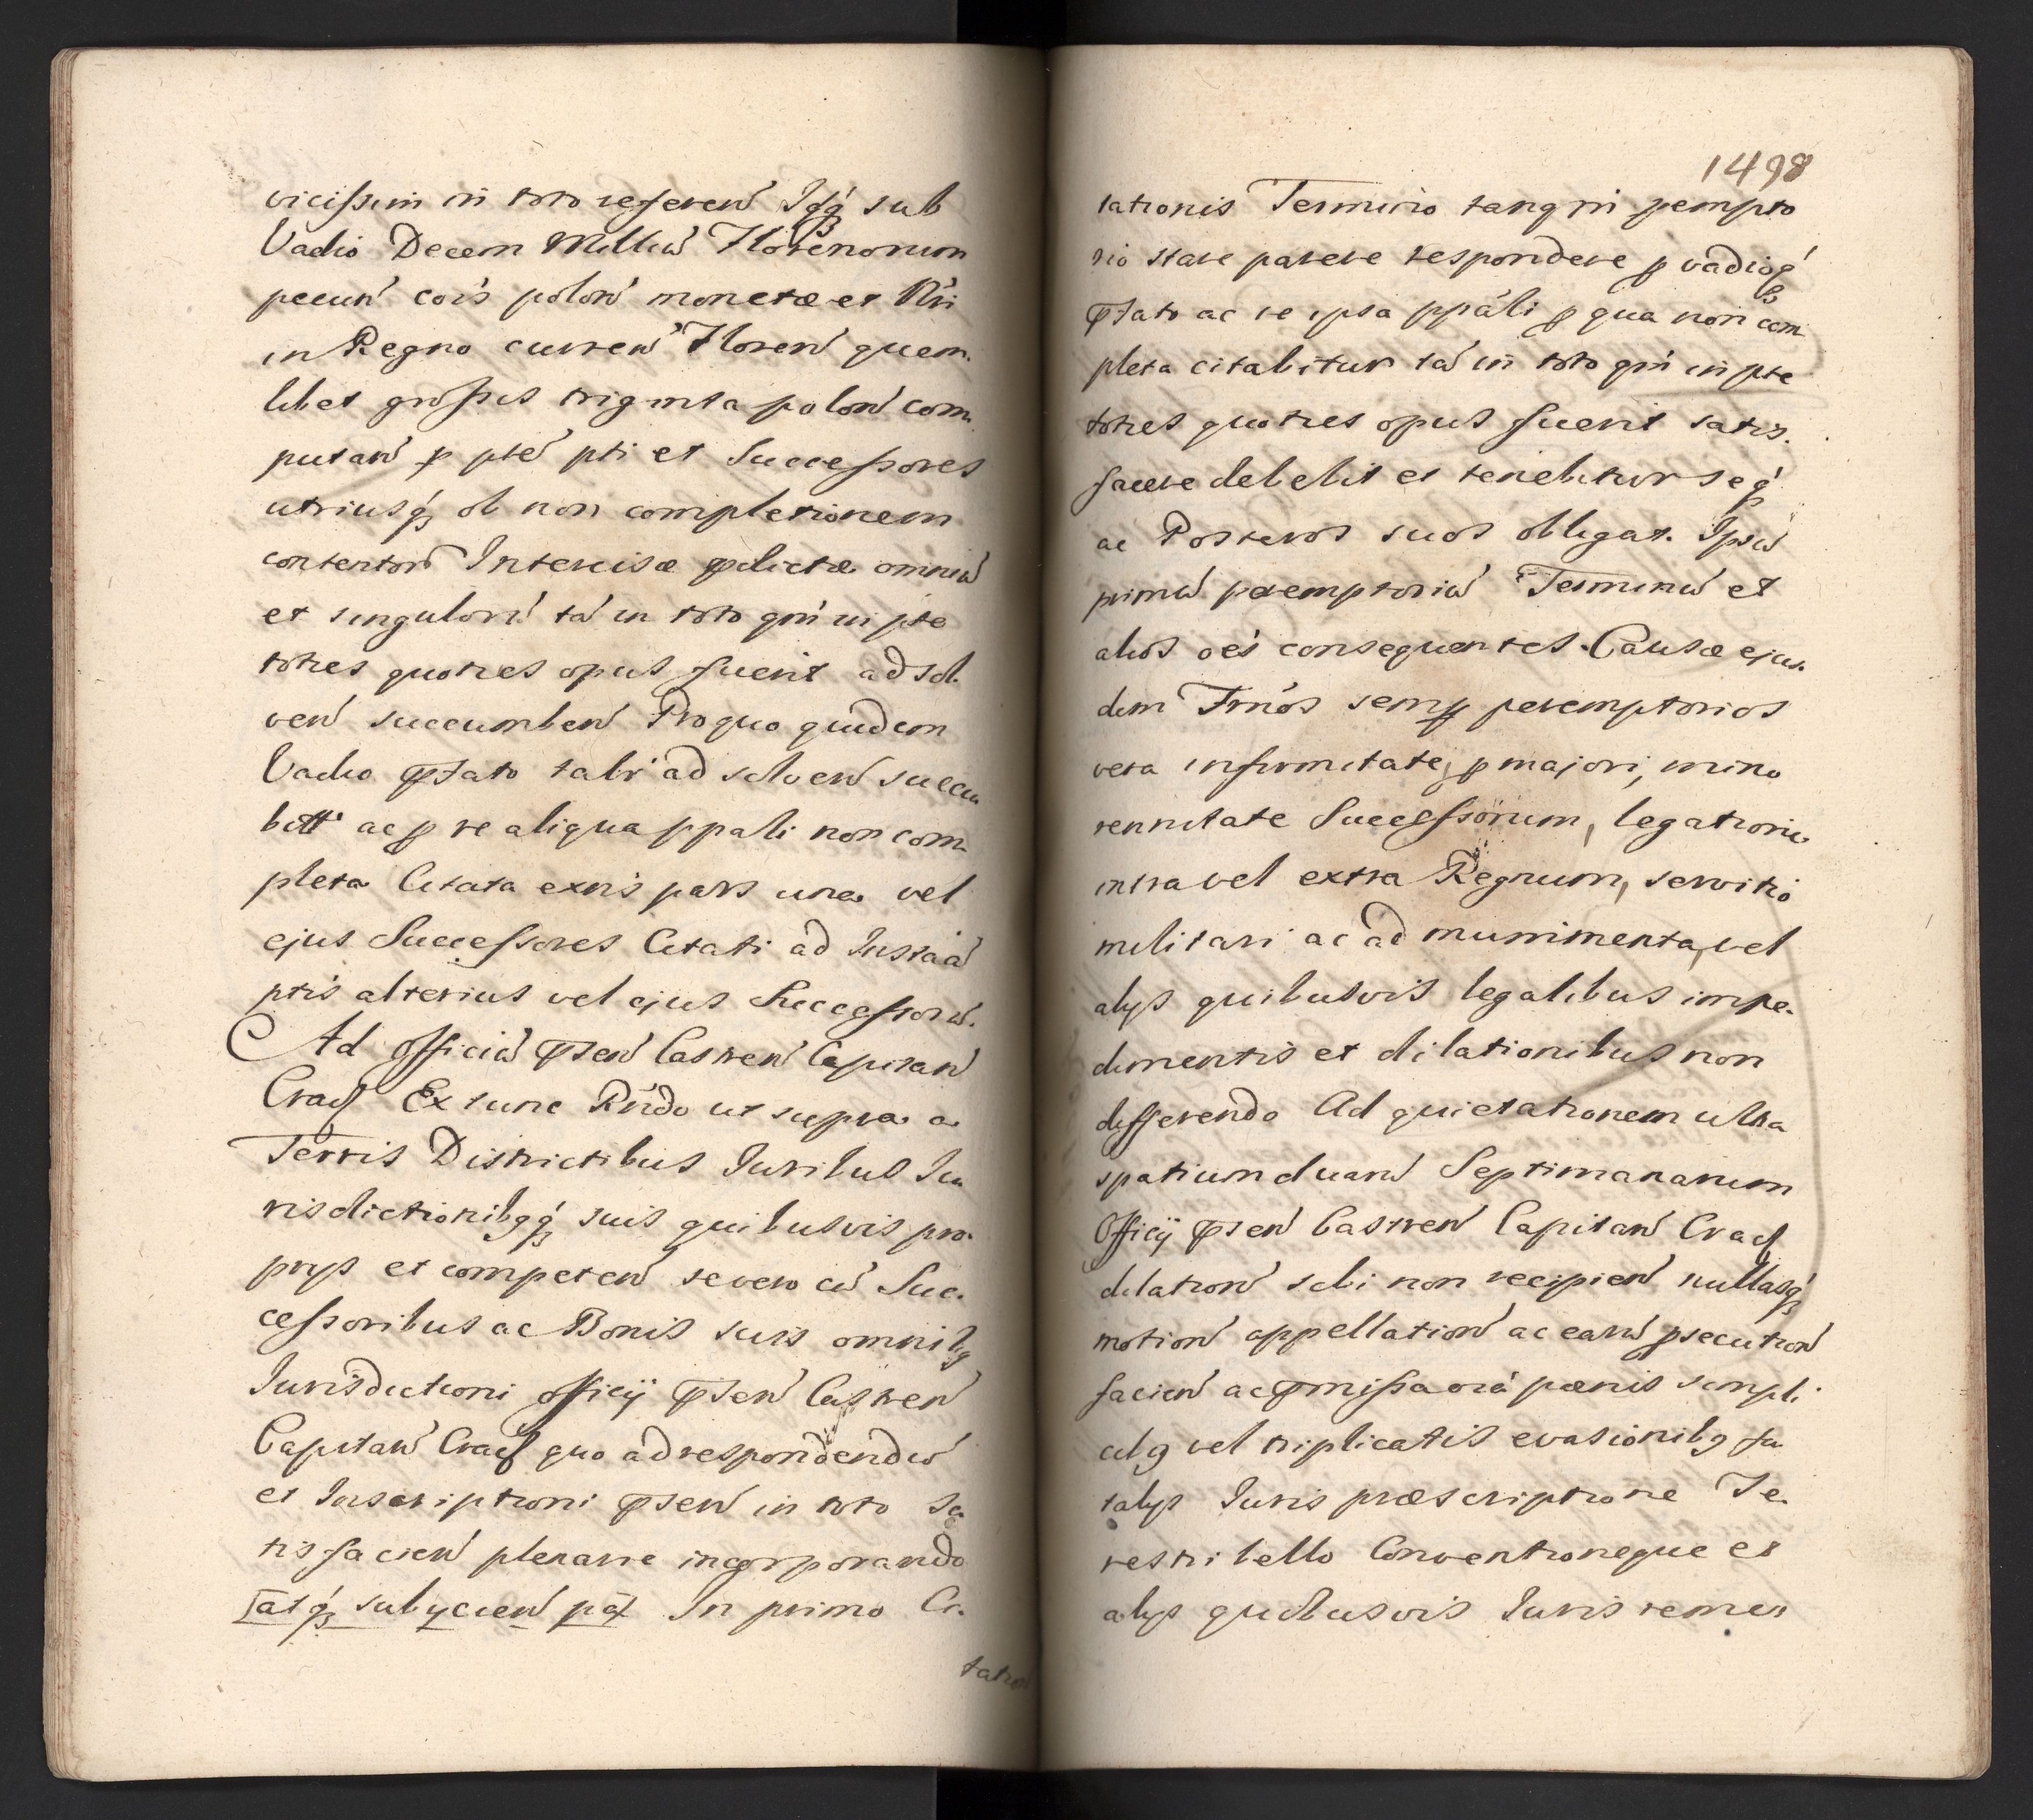 vicissim in toto referen̄ Idq́ꝫ sub
Vadio Decem Milliū Florenorum
pecun̄ coīs polon̄ monetæ et Nri
in Regno curren̄ Floren̄ quem-
libet grossis triginta polon̄ com-
putan̄ ꝑ pte pti et Successores
utriusq́ꝫ ob non completionem
contentor̄ Intercisæ prælictæ omniū
et singulorū tā in toto qm̄ in pte
toties quoties opus fuerit adsol-
ven̄ succumben̄ Pro quo quidem
Vadio prætato tabr ad solven̄ succu
bitt ac ꝓ re aliqua ppali non com-
pleta Citata extris pars una vel
ejus Successores Citati ad Instaā
ptis alterius vel ejus Successorū.
Ad officiū præsen̄ Castren̄ Capitan̄
Crac Ex tunc Rñdo ut supra a
Terris Districtibus Iuribus Iu
risdictionibꝫq́ꝫ suis quibusvis pro-
prijs et competen̄ se vero cū Suc-
cessoribus ac Bonis suis omnibꝫ
Iurisdictioni officij præsen̄ Castren̄
Capitan̄ Crac quo ad respondendū
et Inscriptioni præsen̄ in toto sa
tisfacien̄ plenarie incorporando
atq́ꝫ subijcien̄ In primo Ci-
tatio
1498
tationis Termino tanqm̄ pempto
rio stare parere respondere ꝓ vadioq́ꝫ
prætato ac re ipsa ppāli ꝓ qua non com
pleta citabitur tā in toto qm̄ in pte
toties quoties opus fuerit satis-
facere debebit et tenebitur seq́ꝫ
ac Posteros suos obligat. Ipsū
primū peremptoriū Terminū et
alios oēs consequentes Causæ ejus-
dem Trnōs semꝑ peremptorios
vera infirmitate, ꝓ majori, mino
rennitate Successorum, legationi
intra vel extra Regnum, servitio
militari ac ad munimenta, vel
alijs quibusvis legalibus impe-
dimentis et dilationibus non
differendo Ad quietationem ultra
spatium duarū Septimanarum
Officij præsen̄ Castren̄ Capitan̄ Crac
dilation̄ sibi non recipien̄ nullasq́ꝫ
motion̄ appellation̄ ac earū psecution̄
facien̄ ac præmissa oīa pœnis simpli
cibꝫ vel triplicatis evasionibꝫ fa
talijs Iuris præscriptione Te-
restri bello Conventioneque et
alijs quibusvis Iuris remed